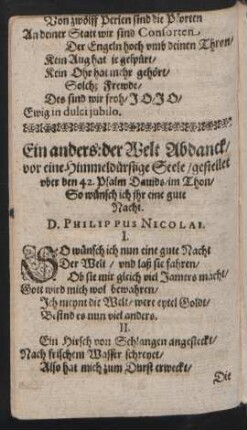 Von zwölff Perlen sind die Pforten
An deiner Statt wir sind Consorten
Der Engeln hoch vmb deinen Thron/
Kein Aug hat je gespürt/
Kein Ohr hat mehr gehört/
Solche Frewde/
Des sind wir froh/ JO JO/
Ewig in dulci jubilo.
Ein anders: der Welt Abdanck/
vor eine Himmeldürstige Seele/ gestellet
vber den 42. Psalm Dauids/ im Thon/
So wünsch ich jhr eine gute
Nacht.
D. PHILIPPUS NICOLAI.
I.
SO wünsch ich nun eine gute Nacht
Der Welt/ vnd laß sie fahren/
Ob sie mir gleich viel Jamers macht/
Gott wird mich wol bewahren/
Ich meynt die Welt/ were eytel Goldt/
Befind es nun viel anders.
II.
Ein Hirsch von Schlangen angesteckt/
Nach frischem Wasser schreyet/
Also hat mich zum Durst erweckt/
Die